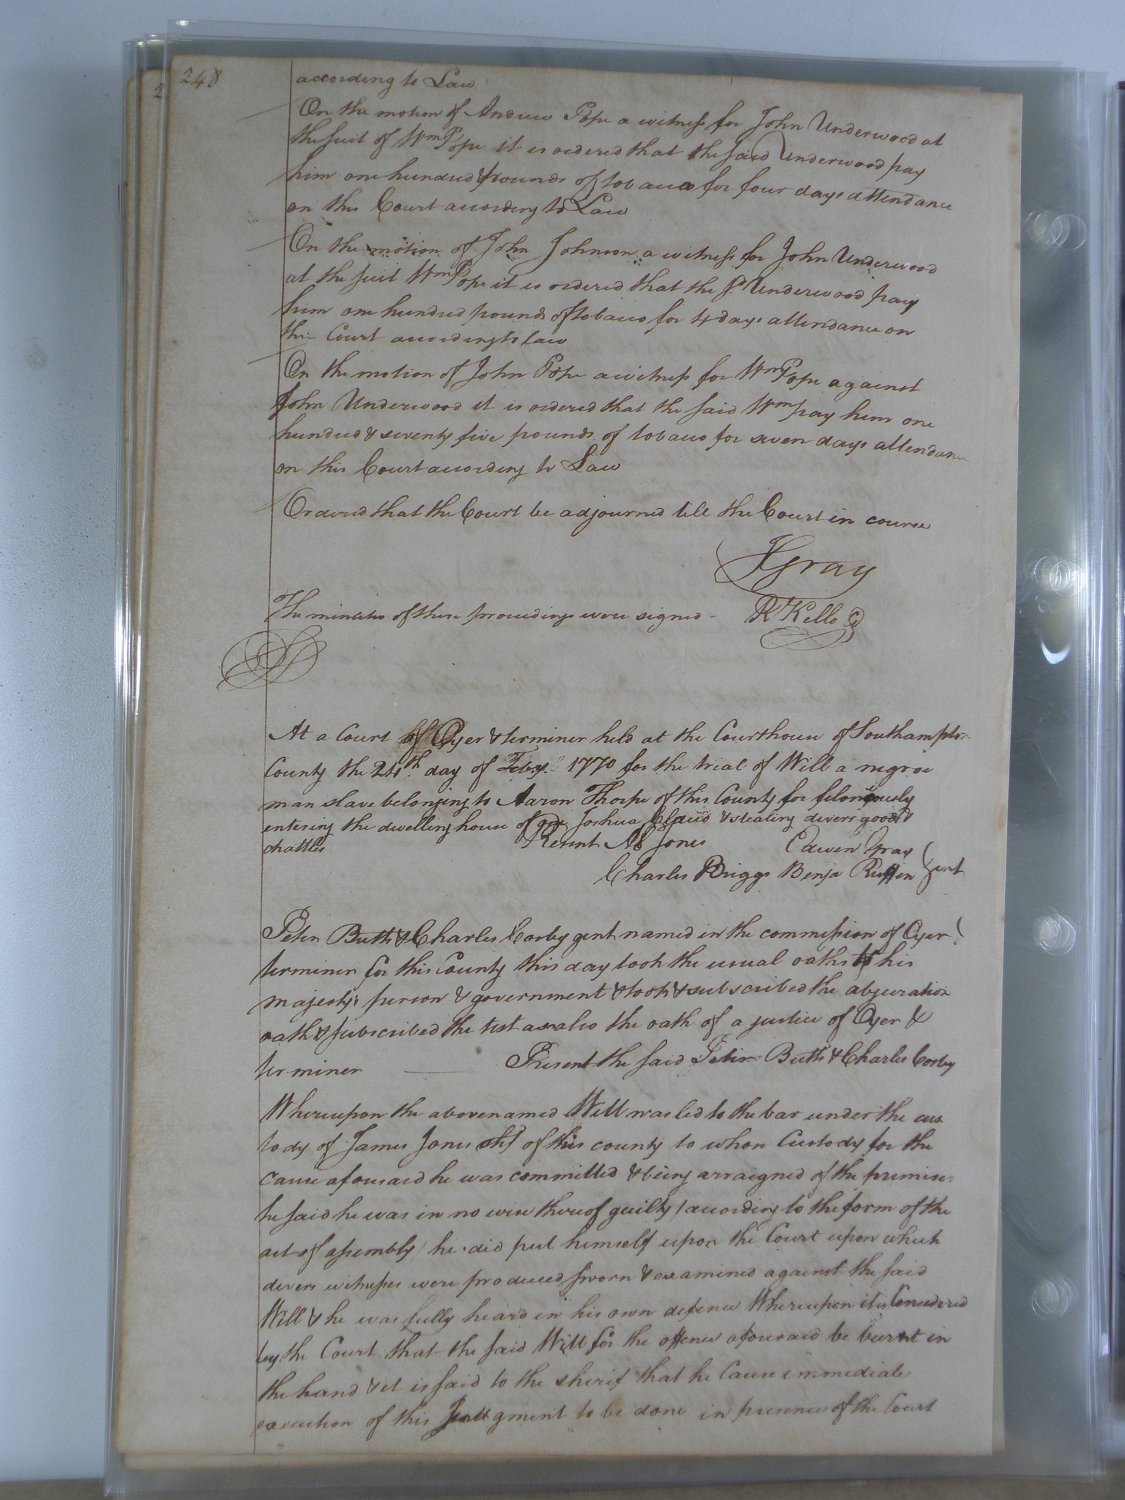 248
2
according to Law
On the motion of Andrew Pope a witness for John Underwood at
the suit of Wm Pope it is ordered that the said Underwood pay
him one hundred pounds of tobacco for four days attendance
on this Court according to Law
On the motion of John Johnson a witness for John Underwood
at the suit Wm Pope it is ordered that the sd Underwood pay
him one hundred pounds of tobacco for 4 days attendance on
this Court according to law
On the motion of John Pope a witness for Wm Pope against
John Underwood it is ordered that the said Wm pay him one
hundred & seventy five pounds of tobacco for seven days attendance
on this Court according to Law
Ordered that the Court be adjourned till the Court in course
Gray
The minutes of these proceedings were signed - R Kello
At a Court of Oyer & terminer held at the Courthouse of Southampton
County the day of Feby 1770 for the trial of Will a negroe
man slave belonging to Aaron Thorpe of this County for feloniously
entering the dwelling house of Joshua Claud & stealing divers goods &
chattles Present Jones Edwin Gray
Charles Briggs Benja Ruffin Gent
Peter Butts & Charles Cosby gent named in the commission of Oyer &
terminer for this County this day took the usual oaths to his
majesty's person & government & took & subscribed the abjuration
oath & subscribed the test as also the oath of a justice of Oyer &
terminer Present the said Peter Butts & Charles Cosby
Whereupon the abovenamed Will was led to the bar under the cus
tody of James Jones shf of this county to whom Custody for the
cause aforesaid he was committed & being arraigned of the premises
he said he was in no wise thereof guilty / according to the form of the
act of assembly / he did put himself upon the Court upon which
divers witnesses were produced sworn & examined against the said
Will & he was fully heard in his own defence Whereupon it is Considered
by the Court that the said Will for the offence aforesaid be burnt in
the hand & it is said to the sherif that he Cause immediate
execution of this Judgment to be done in presence of the Court